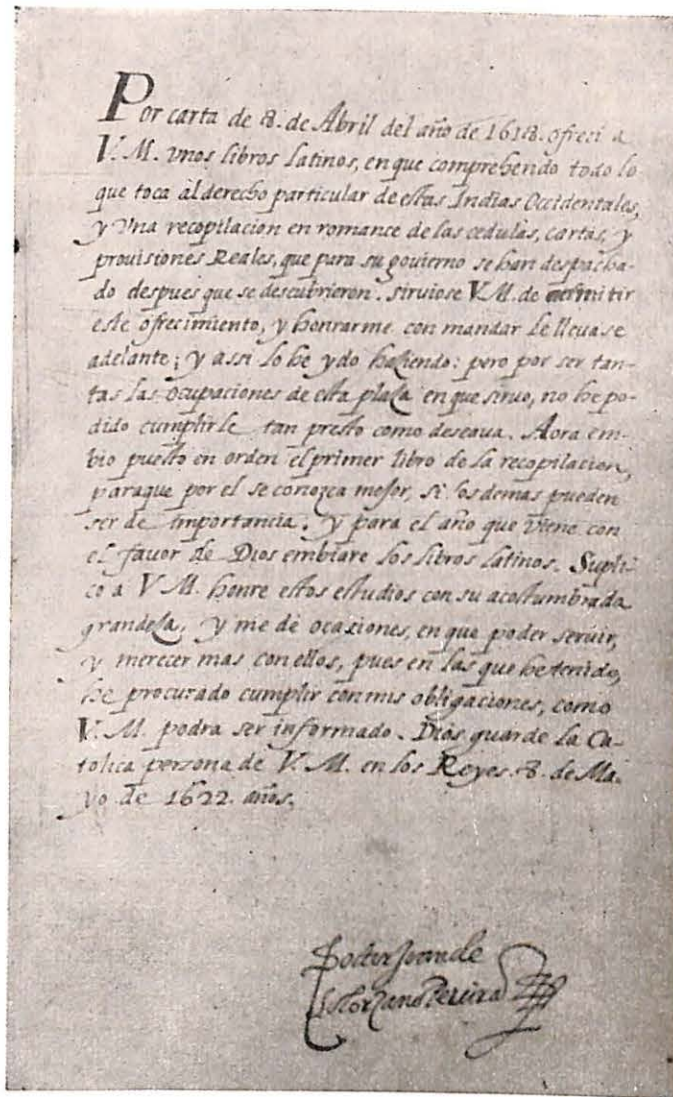 Por carta de 8. de Abril del año de 1618. ofresi a
V. M. vnos libros latinos, en que comprehendo todo lo
que toca al derecho particular de estas Indias Occidentales,
y vna recopilacion en romance de las cedulas, cartas, y
provisiones Reales, que para su govierno se han despacha-
do despues que se descubrieron. siruiose V.M. de
este ofrecimiento, y honrarme con mandar le lleuase
adelante; y assi lo he ydo haziendo: pero por ser tan-
tas las ocupaciones de esta plaza en que siruo, no he po-
dido cumplirle tan presto como deseaua. Aora em-
bio puesto en orden el primer libro de la recopilacion,
paraque por el se conozca mejor, si los demas pueden
ser de importancia. y para el año que viene con
el favor de Dios embiare los libros latinos. Supli-
co a V M. honre estos estudios con su acostumbrada
grandeza. y me de ocasiones, en que poder seruir,
y merecer mas con ellos, pues en las que he tenido,
he procurado cumplir con mis obligaciones, como
V. M. podra ser informado. Dios guarde la Ca-
tolica persona de V. M. en los Reyes. 8. de Ma-
yo de 1622. años.
Doctor Juan de
Solorzano Pereira